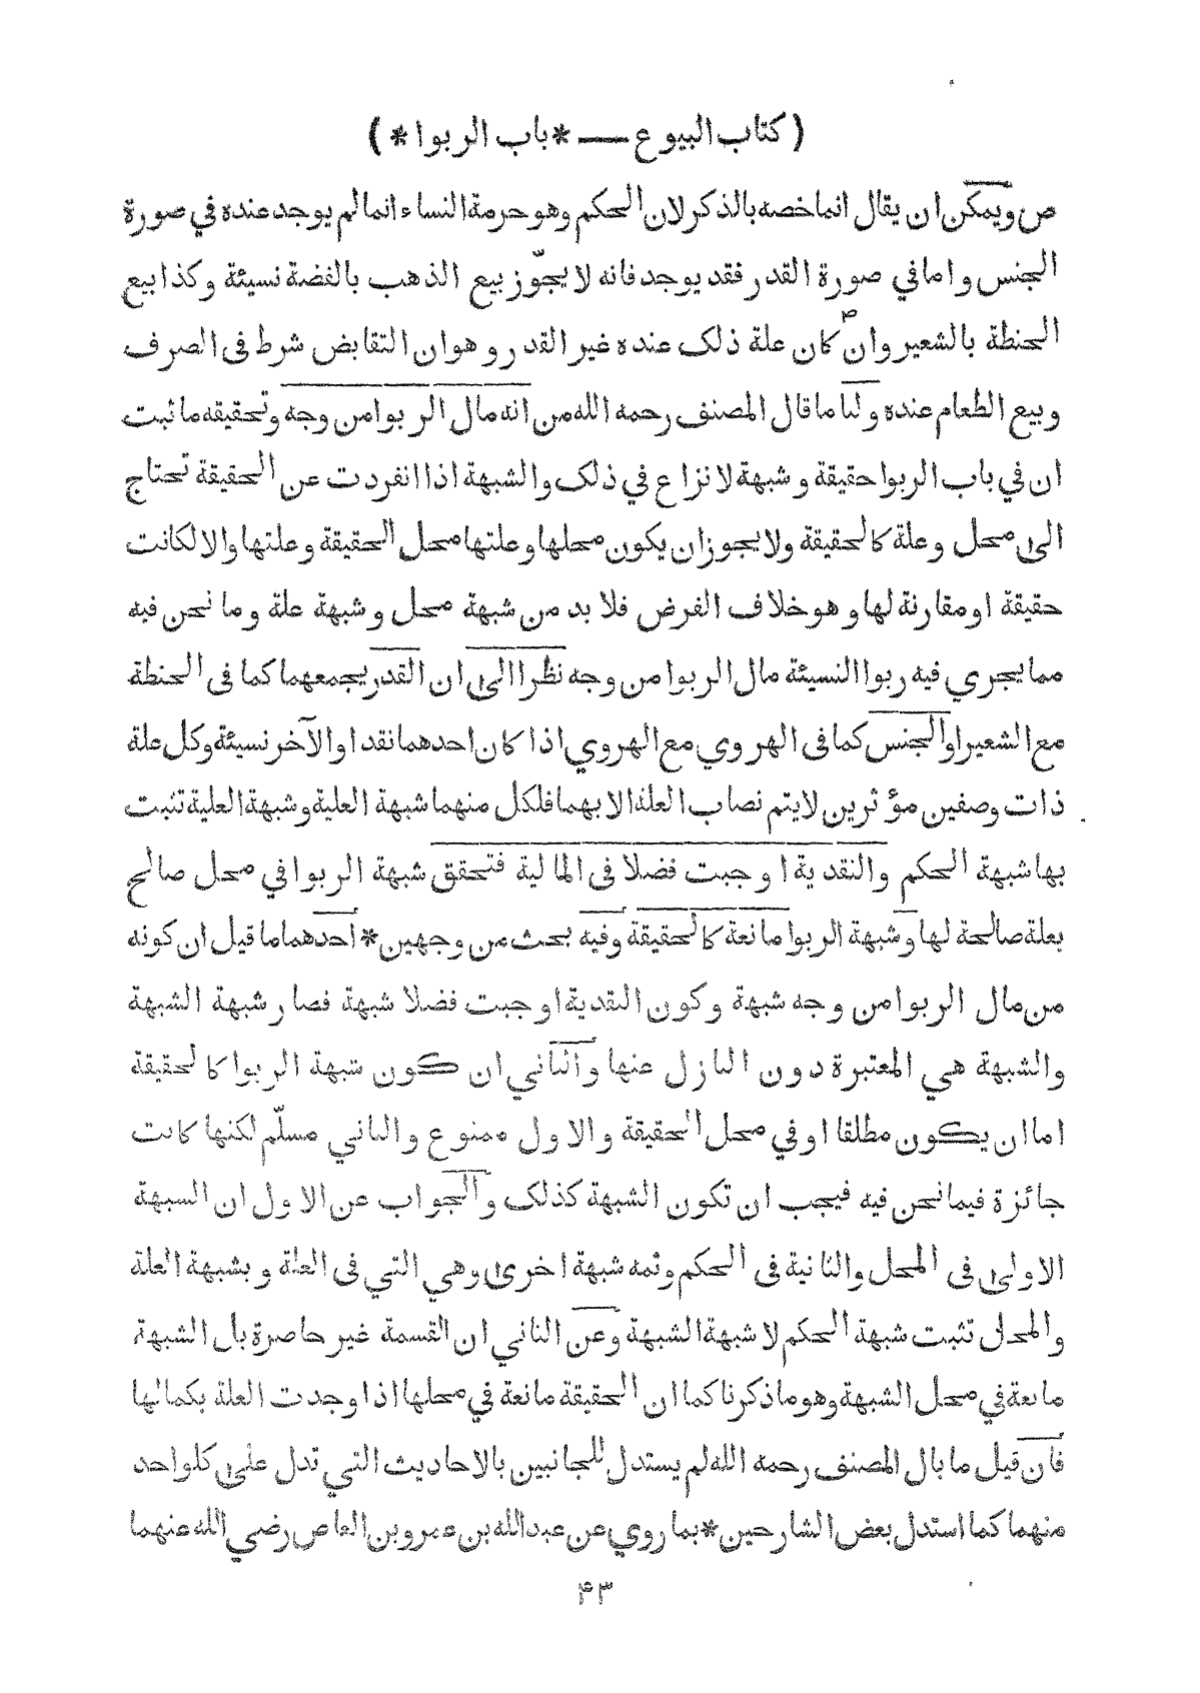 ( كتاب البيوع — * باب الربوا * )
ص ويمكن ان يقال انما خصه بالذكر لان الحكم وهو حرمة النساء انما لم يوجد عنده في صورة
الجنس واما في صورة القدر فقد يوجد فانه لا يجوّز بيع الذهب بالفضة نسيئة وكذا بيع
الحنطة بالشعير وان كان علة ذلك عنده غير القدر وهو ان التقابض شرط فى الصرف
وبيع الطعام عنده ولنا ما قال المصنف رحمه الله من انه مال الربوا من وجه وتحقيقه ما ثبت
ان في باب الربوا حقيقة وشبهة لا نزاع في ذلك والشبهة اذا انفردت عن الحقيقة تحتاج
الى محل وعلة كالحقيقة ولا يجوز ان يكون محلها وعلتها محل الحقيقة وعلتها والا لكانت
حقيقة او مقارنة لها وهو خلاف الفرض فلا بد من شبهة محل وشبهة علة وما نحن فيه
مما يجري فيه ربوا النسيئة مال الربوا من وجه نظرا الى ان القدر يجمعهما كما فى الحنطة
مع الشعير او الجنس كما فى الهروي مع الهروي اذا كان احدهما نقدا والآخر نسيئة وكل علة
ذات وصفين مؤثرين لا يتم نصاب العلة الا بهما فلكل منهما شبهة العلية وشبهة العلية تثبت
بها شبهة الحكم والنقدية اوجبت فضلا فى المالية فتحقق شبهة الربوا في محل صالح
بعلة صالحة لها وشبهة الربوا مانعة كالحقيقة وفيه بحث من وجهين * احدهما ما قيل ان كونه
من مال الربوا من وجه شبهة وكون النقدية اوجبت فضلا شبهة فصار شبهة الشبهة
والشبهة هي المعتبرة دون النازل عنها والثاني ان كون شبهة الربوا كالحقيقة
اما ان يكون مطلقا او في محل الحقيقة والاول ممنوع والثاني مسلّم لكنها كانت
جائزة فيما نحن فيه فيجب ان تكون الشبهة كذلك والجواب عن الاول ان الشبهة
الاولى فى المحل والثانية فى الحكم وثمه شبهة اخرى وهي التي فى العلة وبشبهة العلة
والمحل تثبت شبهة الحكم لا شبهة الشبهة وعن الثاني ان القسمة غير حاصرة بل الشبهة
مانعة في محل الشبهة وهو ما ذكرنا كما ان الحقيقة مانعة في محلها اذا وجدت العلة بكمالها
فان قيل ما بال المصنف رحمه الله لم يستدل للجانبين بالاحاديث التي تدل على كل واحد
منهما كما استدل بعض الشارحين * بما روي عن عبد الله بن عمرو بن العاص رضي الله عنهما
۴۳